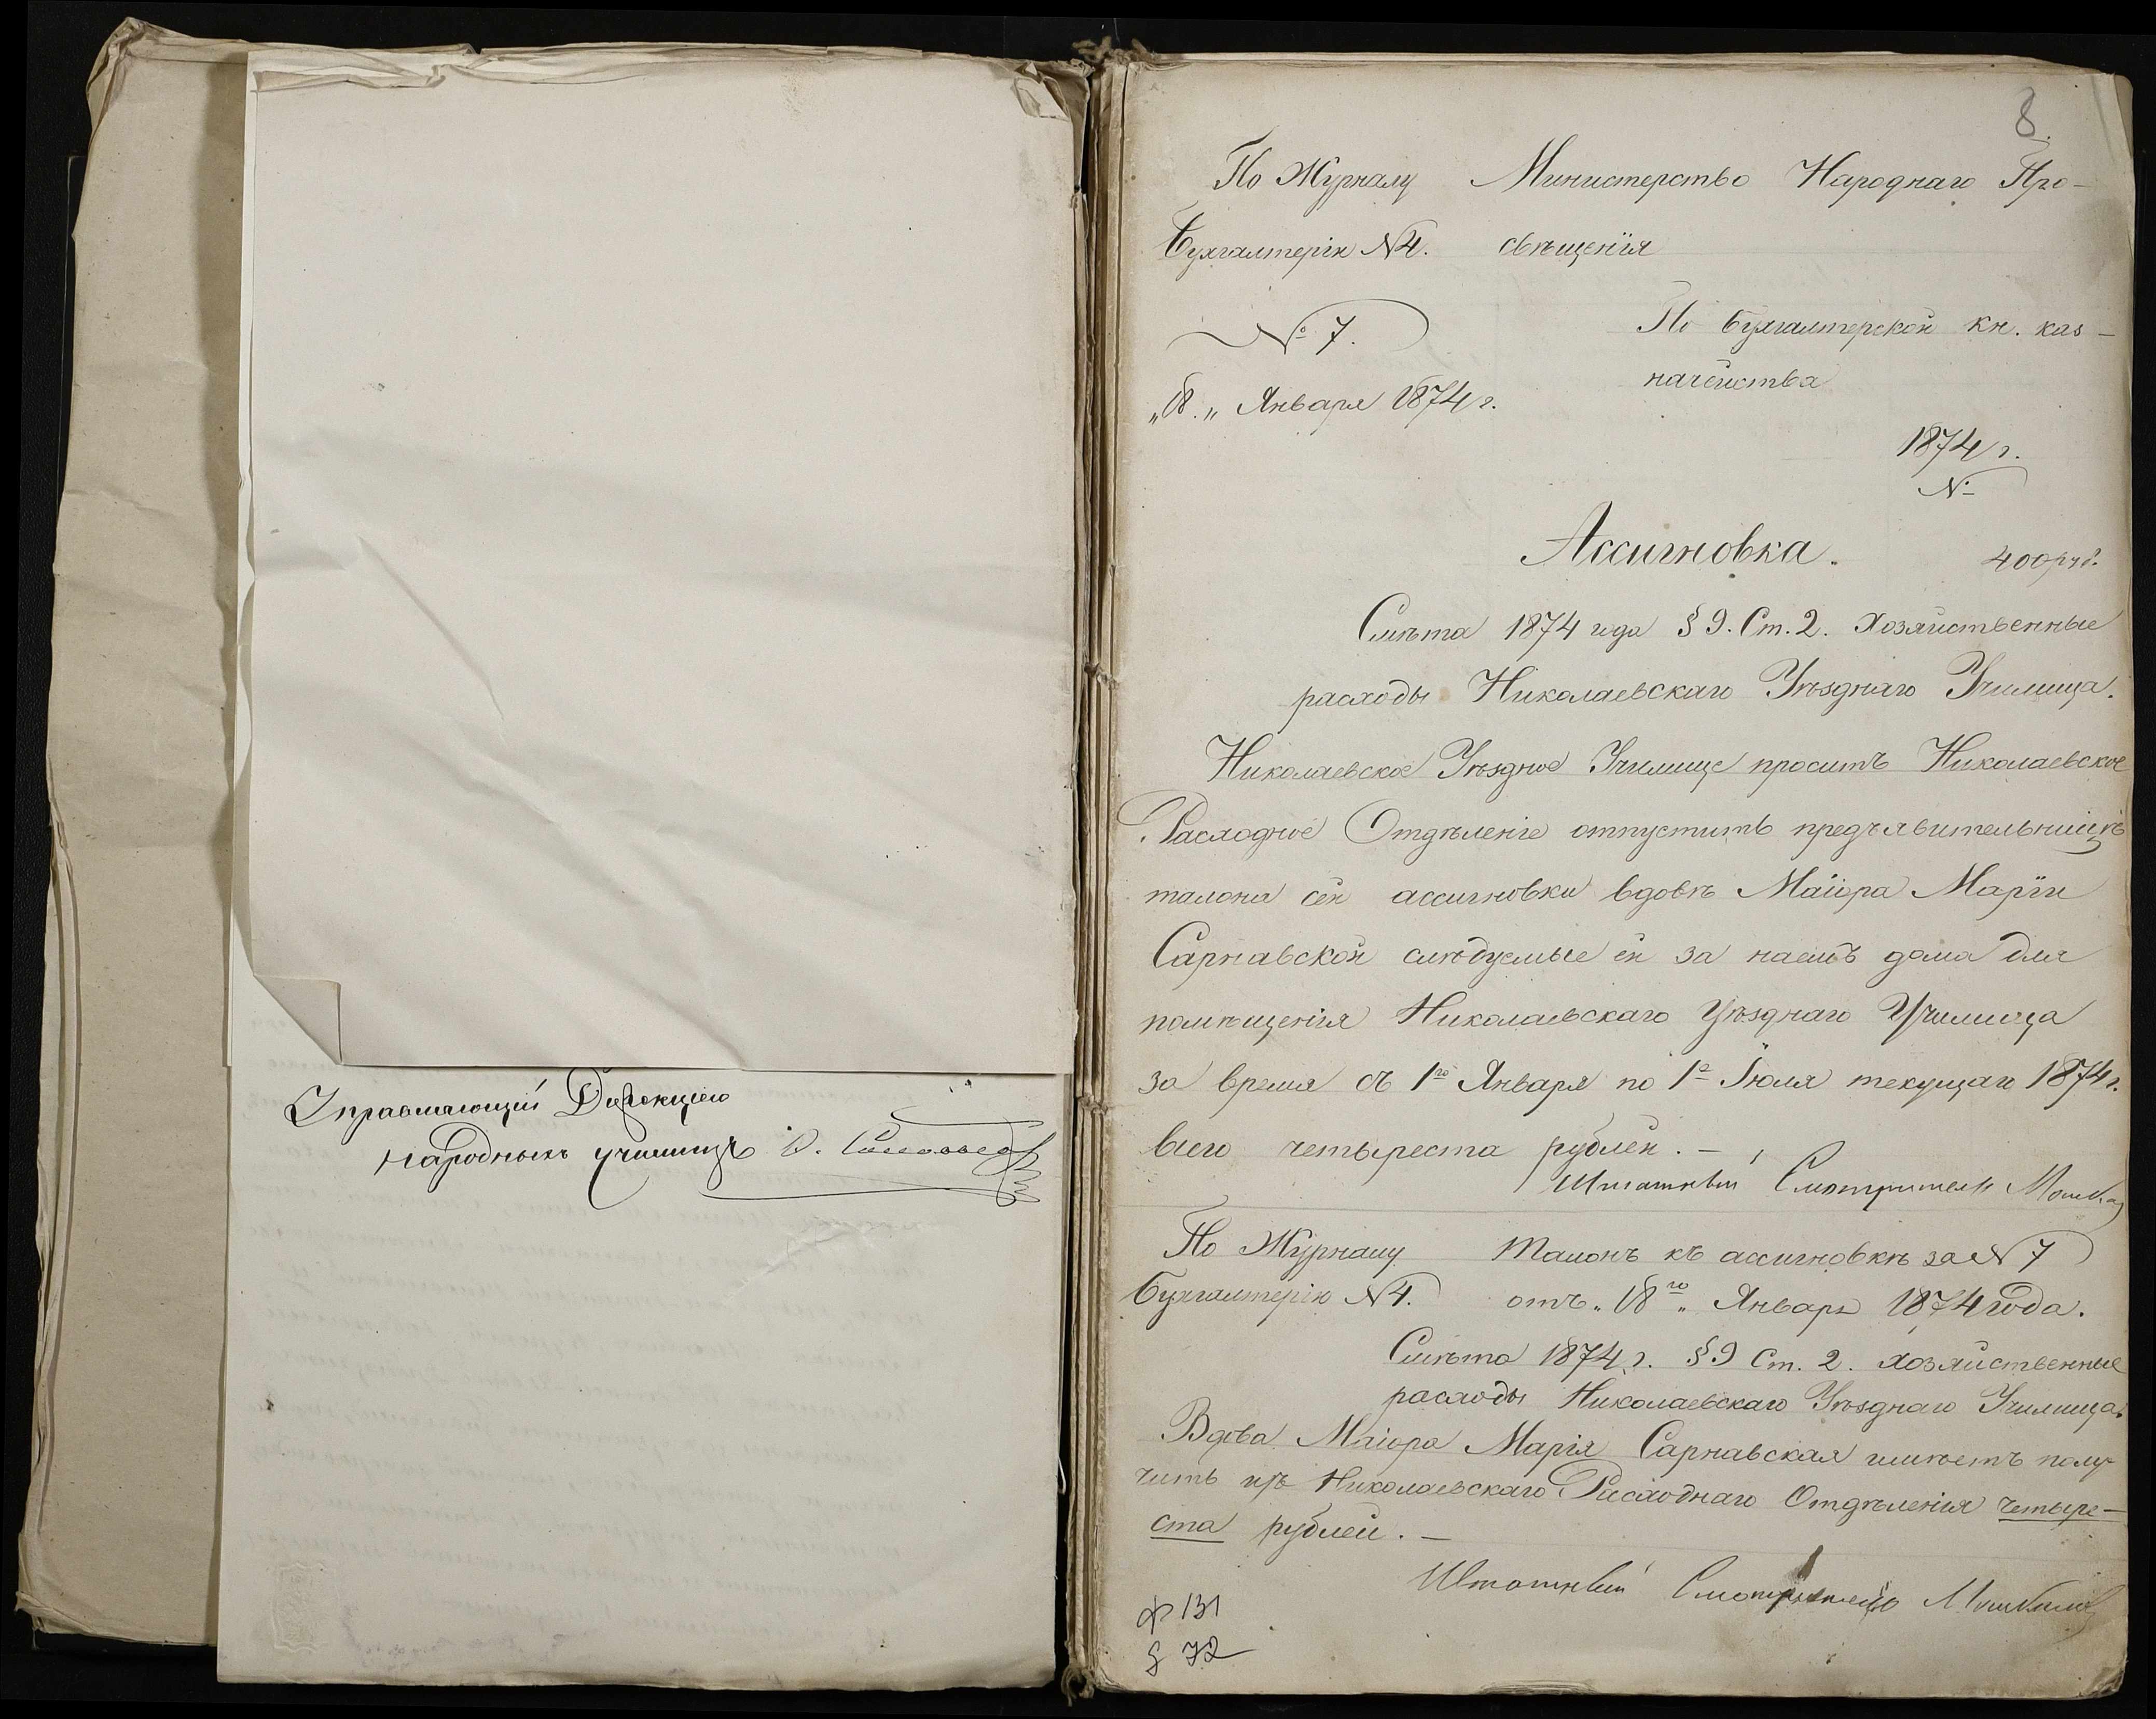 Управляющій Дирекціею
народныхъ училищъ
8.
По Журналу
Бухгалтеріи №4.
№ 7.
„18.„ Января 1874 г.
Министерство Народнаго Про-
свѣщенія
По бухгалтерской кн. каз-
начейства
1874 г.
№
Ассигновка.
400 руб.
Смѣта 1874 года § 9. Ст. 2. Хозяйственные
расходы Николаевскаго Уѣзднаго Училища.
Николаевское Уѣздное Училище проситъ Николаевское
Расходное Отдѣленіе отпустить предъявительницѣ
талона сей ассигновки вдовѣ Маіора Маріи
Сарнавской слѣдуемые ей за наемъ дома для
помѣщенія Николаевскаго Уѣзднаго Училища
за время съ 1го Января по 1е Іюля текущаго 1874 г.
всего четыреста рублей. —
Штатный Смотритель
По Журналу
Бухгалтеріи №4.
Талонъ къ ассигновкѣ за № 7
отъ „18го„ Января 1874 года.
Смѣта 1874 г. § 9 Ст. 2. Хозяйственные
расходы Николаевскаго Уѣзднаго Училища.
Вдова Маіора Марія Сарнавская имѣетъ полу-
чить изъ Николаевскаго Расходнаго Отдѣленія четыре-
ста рублей. —
Штатный Смотритель
ф 131
72